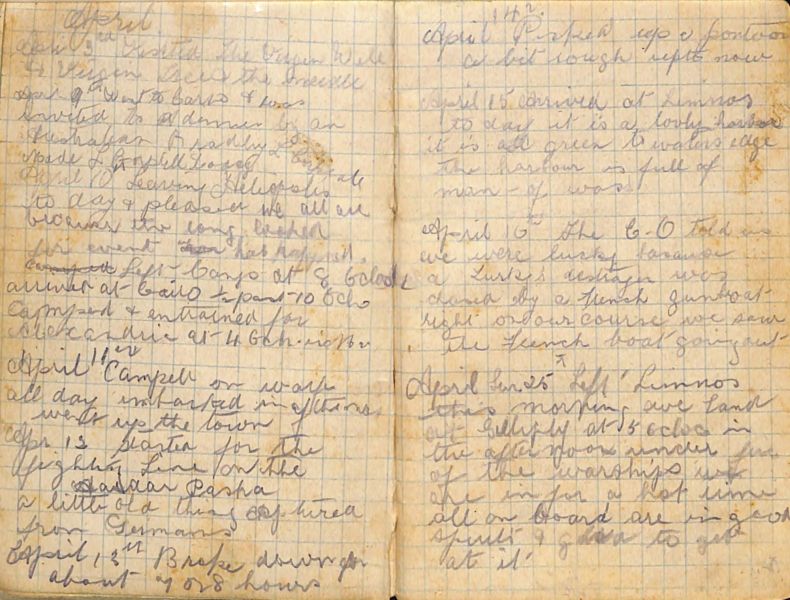 April
April 3rd Visited the Virgin Well
& Virgin Tree the
April 9th Went to Cario & was
invited to a dinner by an
Australian Bradley &
Made
April 10th Leaving Heliopolis
to day & pleased we all are
because the long looked
for event has happened.
Left Camp at 8 Oclock
arrived at Cairo ½ past 10 Oclo
Camped & entrained for
Alexandria at 4 Och
April 11th Campell on warf
all day imbarked in afternoo
went up the town
Apr 13 Started for the
fighting Line on the
Haidar Pasha
a little old thing captured
from Germans
April 13th Broke down for
about 7 or 8 hours
April 14th Picked up a pontoon
a bit rough upto now
April 15 Arrived at Limnos
to day it is a lovly harbor
it is all green to waters edge
the harbour is full of
man-of was
April 16th The C-O Told us
we were lucky because
a Turkys destroyer was
chased by a French gunboat
right on our course we saw
the French boat going out
April Sun 25th Left Limnos
this morning we Land
at Galliply at 5 ocloc in
the afternoon under fire
of the warships we
are in for a hot time
all on board are in good
spirits & glad to get
at it